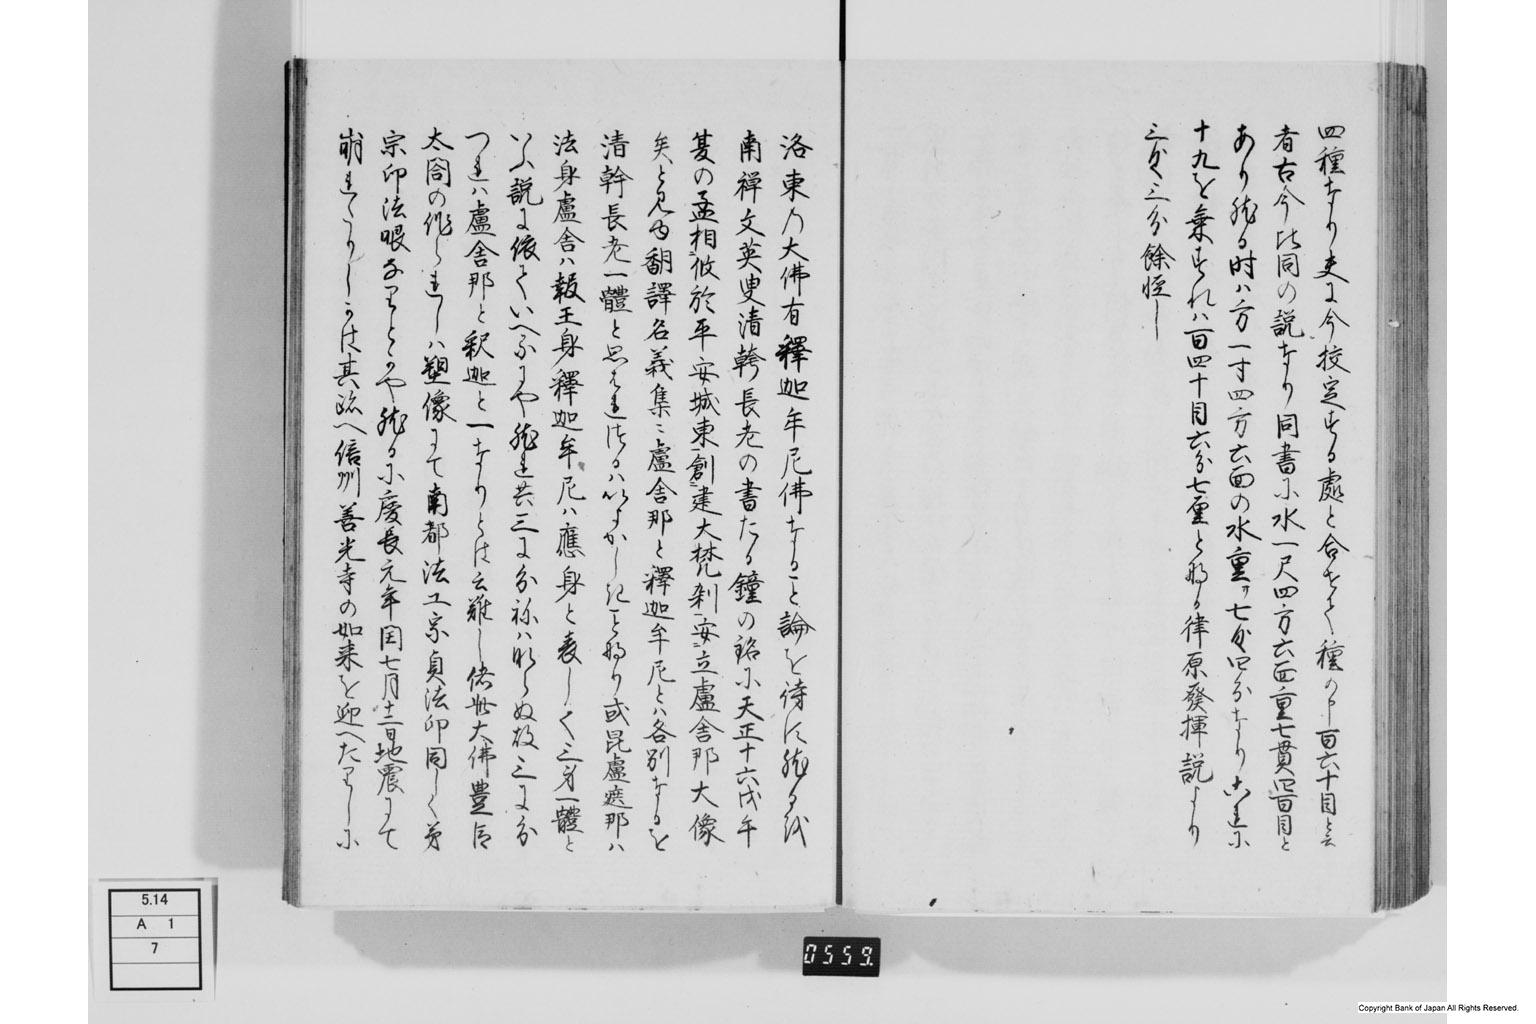 四種なり更に今校定する處と合せて種の内百六十目と云
者古今比同の説なり同書に水一尺四方六面重七貫四百目と
あり然る時ハ方一寸四方六面の水重サ七匁四分なりこれに
十九を乗すれハ百四十目六分七厘と成る律原發揮説より
三匁三分餘軽し
洛東乃大佛有釋迦牟尼佛なること論を待す然るを
南禅文英叟清韓長老の書たる鐘の銘に天正十六戊午
夏の孟相攸於平安城東創建大梵刹安立盧舎那大像
矣と見ゆ翻譯名義集ニ盧舎那と釋迦牟尼とハ各別なるを
清幹長老一體と思はれけるハいふかしきこと也或昆盧遮那ハ
法身盧舎ハ報王身釋迦牟尼ハ應身と表して三身一體と
いふ説に依ていへるにや然共三に分ねハならぬ故三に分
つれハ盧舎那と釈迦と一なりとは云難し偖此大佛豊臣
太閤の作られしハ塑像にて南都法工宗貞法印同しく弟
宗印法眼なりとかや然るに慶長元年閏七月十二日地震にて
崩れたりしかは其跡へ信州善光寺の如来を迎へたりしに
5.14
A 1
7
0559
Copyright Bank of Japan All Rights Reserved.